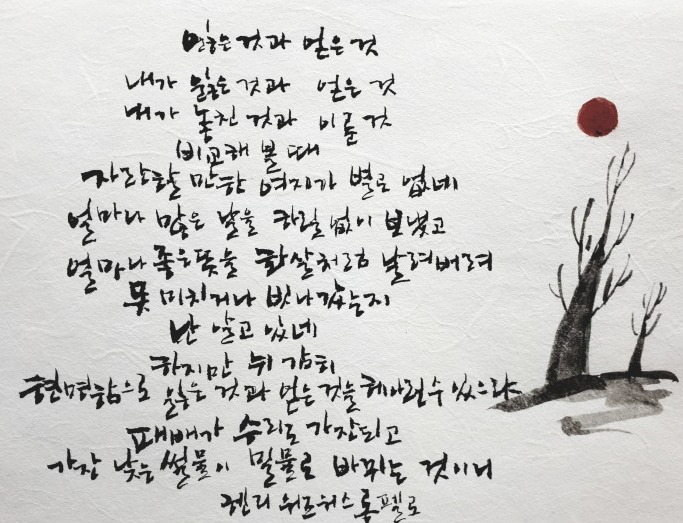 잃은 것과 얻은 것
내가 잃은 것과 얻은 것
내가 놓친 것과 이룬 것
비교해 볼 때
자랑할 만한 여지가 별로 없네
얼마나 많은 날을 하릴없이 보냈고
얼마나 좋은 뜻을 화살처럼 날려버려
못 미치거나 빗나갔는지
난 알고 있네
하지만 뉘 감히
현명함으로 잃은 것과 얻은 것을 헤아릴 수 있으랴
패배가 승리로 가장되고
가장 낮은 썰물이 밀물로 바뀌는 것이니
헨리 워즈워스 롱펠로